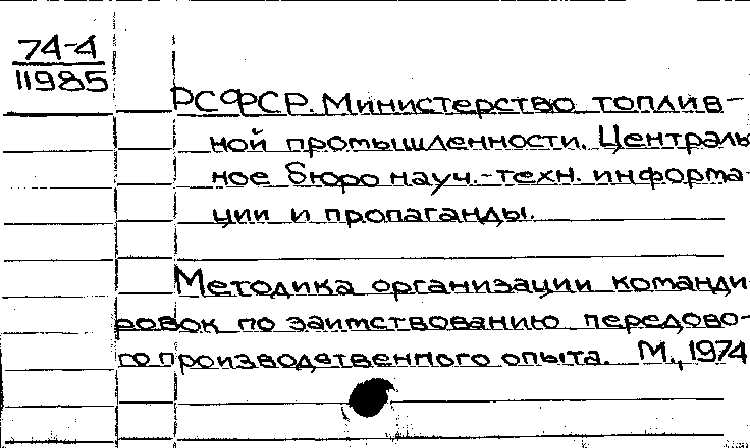 74-4
11985
РСФСР. Министерство топлив-
ной промышленности. Централь
ное бюро науч.-техн. информа-
ции и пропаганды.
Методика организации команди
ровок по заимствованию передово-
го производственного опыта. М., 1974